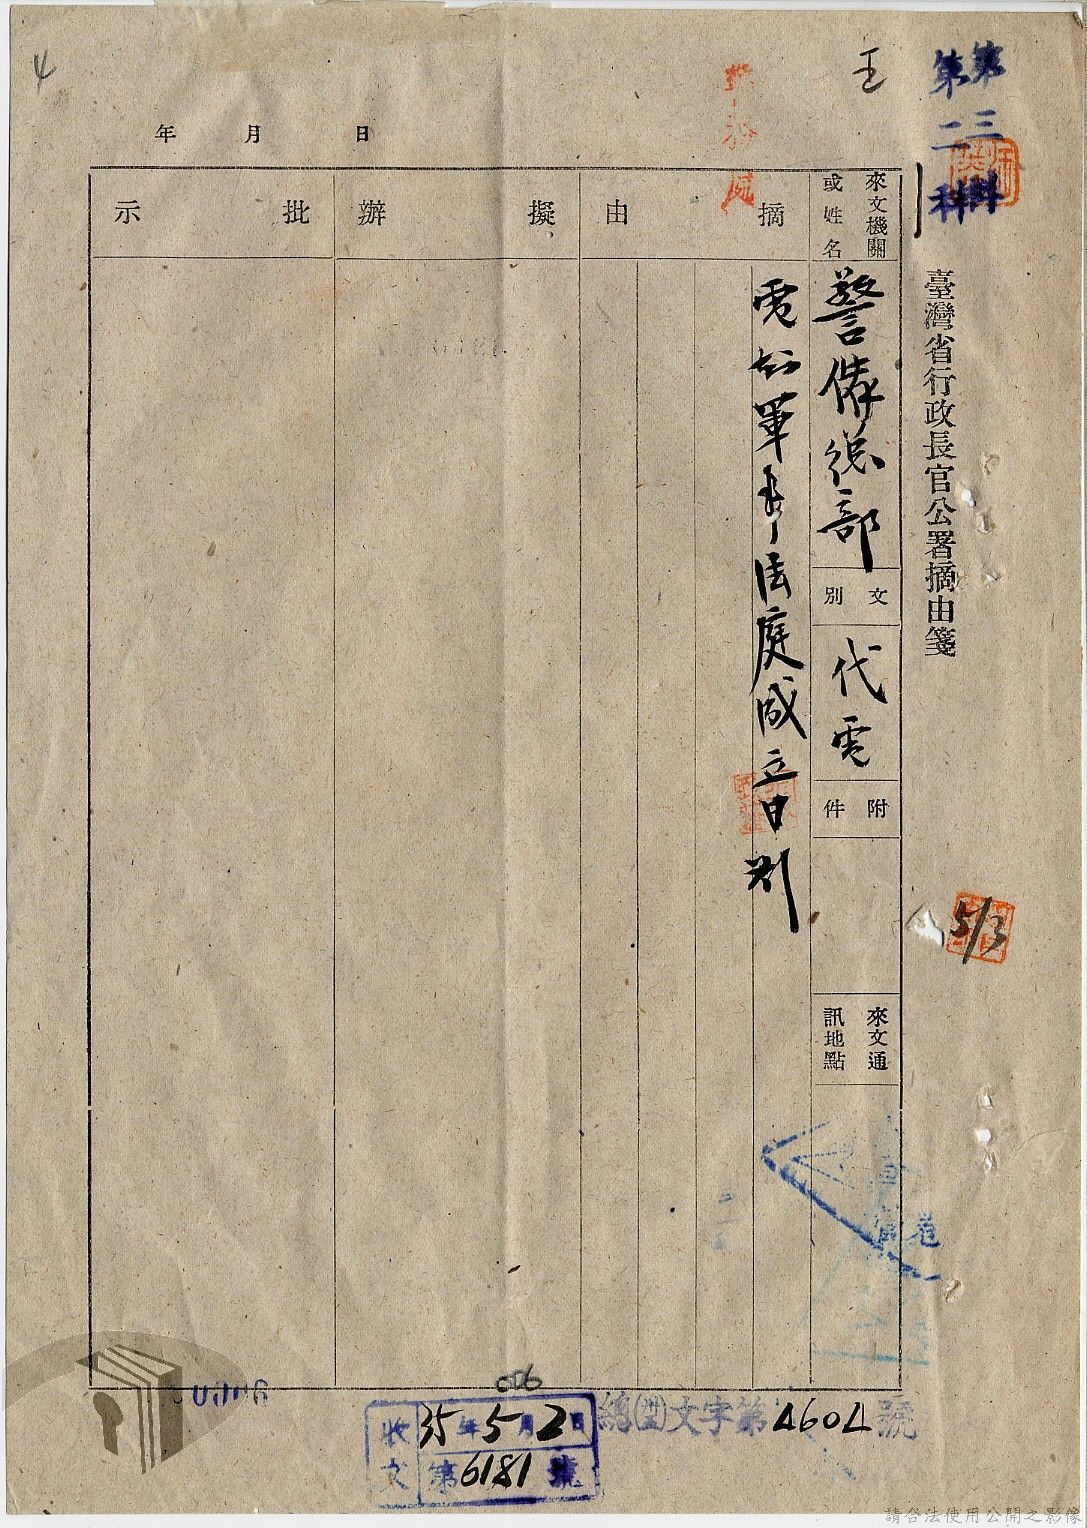 第三科
第二科
王
臺灣省行政長官公署摘由箋
來文機關
或姓名
警備總部
文別
代電
附件
來文通
訊地點
摘由
電知軍事法庭成立日期
擬辦
批示
年 月 日
4
5/3
收文 35年5月2日
第6181號
總文字第4604號
056
請合法使用公開之影像